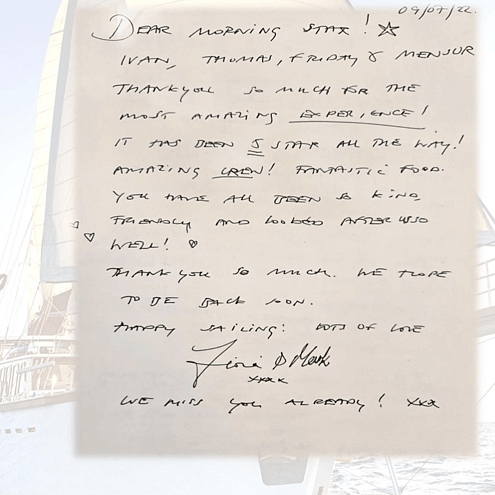 09/07/22.
DEAR MORNING STAR! ☆
IVAN, THOMAS, FRIDAY & MENSUR
THANKYOU SO MUCH FOR THE
MOST AMAZING EXPERIENCE!
IT HAS BEEN 5 STAR ALL THE WAY!
AMAZING CREW! FANTASTIC FOOD.
YOU HAVE ALL BEEN SO KIND,
FRIENDLY AND LOOKED AFTER US SO
♡ WELL! ♡
THANK YOU SO MUCH. WE HOPE
TO BE BACK SOON.
HAPPY SAILING! LOTS OF LOVE
& Mark
xxxx
WE MISS YOU ALREADY! xxx